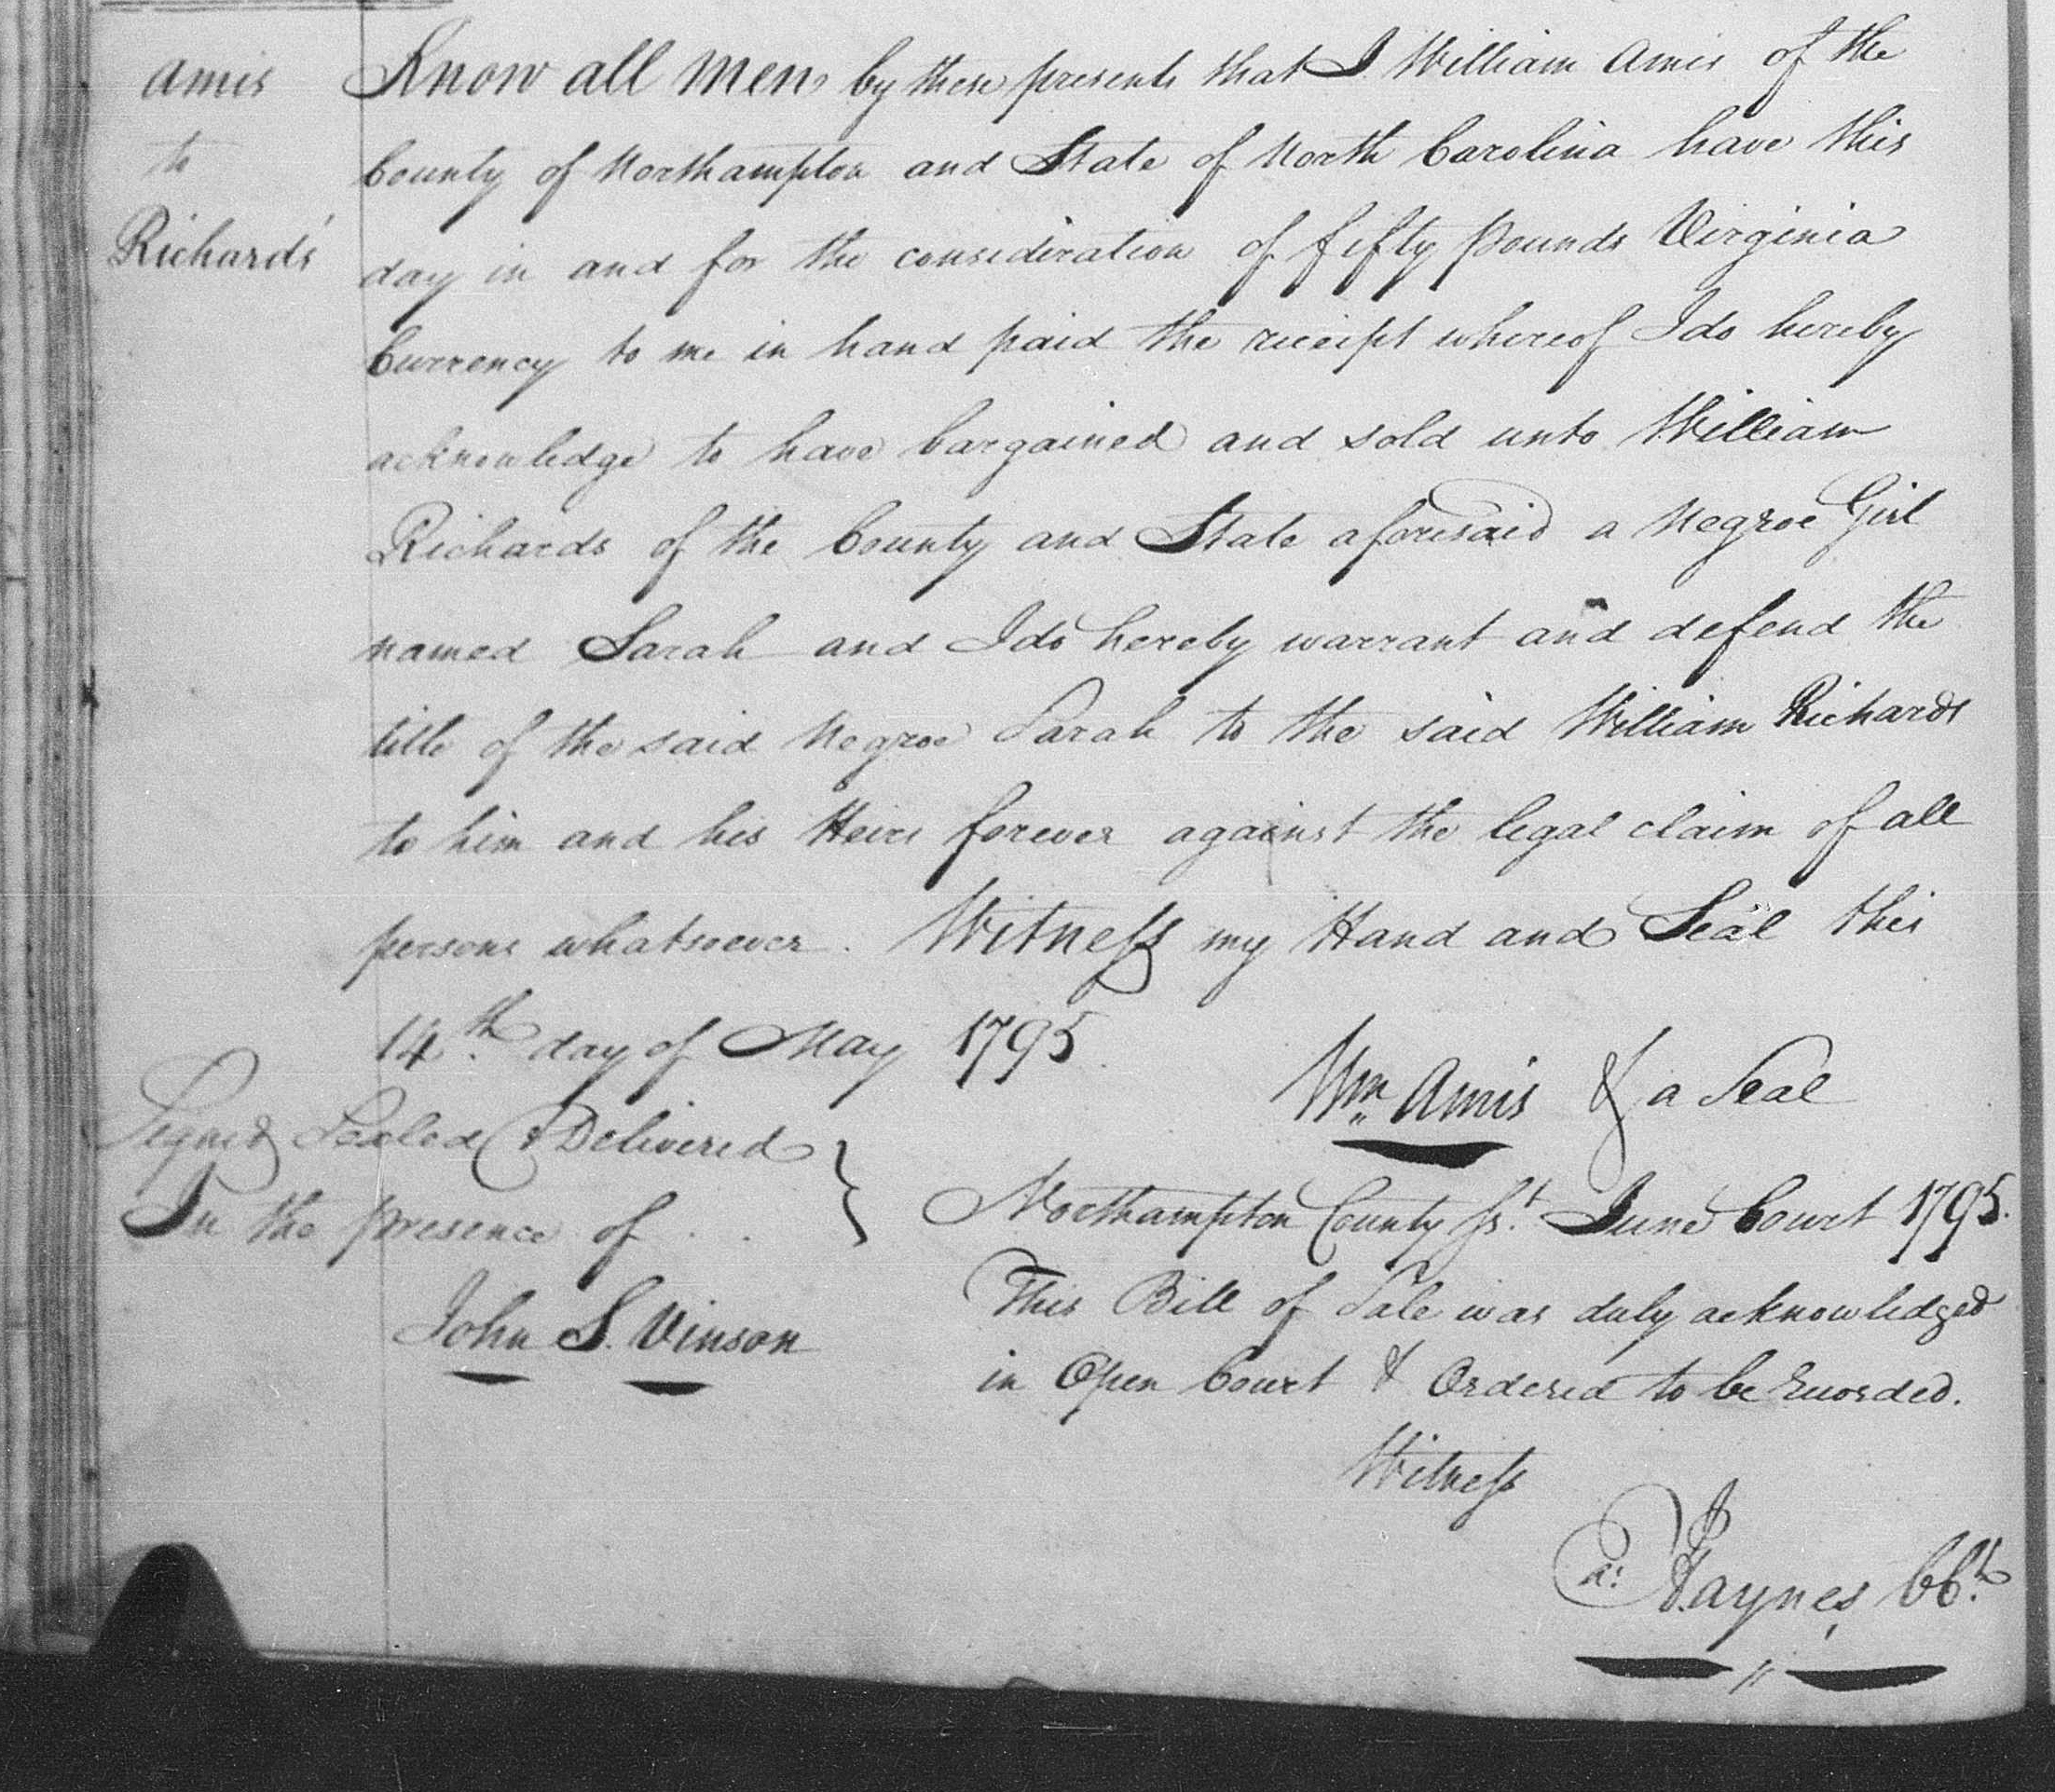 Amis
to
Richards
Know all men by these presents that I William Amis of the
County of Northampton and State of North Carolina have this
day in and for the consideration of fifty pounds Virginia
Currency to me in hand paid the receipt whereof I do hereby
acknowledge to have bargained and sold unto William
Richards of the County and State aforesaid a Negroe Girl
named Sarah and I do hereby warrant and defend the
title of the said Negroe Sarah to the said William Richards
to him and his Heirs forever against the legal claim of all
persons whatsoever. Witness my Hand and Seal this
14th day of May 1795
Wm Amis & a Seal
Signed Sealed & Delivered
In the presence of . .
John S. Vinson
Northampton County Sst June Court 1795.
This Bill of Sale was duly acknowledged
in Open Court & Ordered to be Recorded.
Witness
Haynes CCk